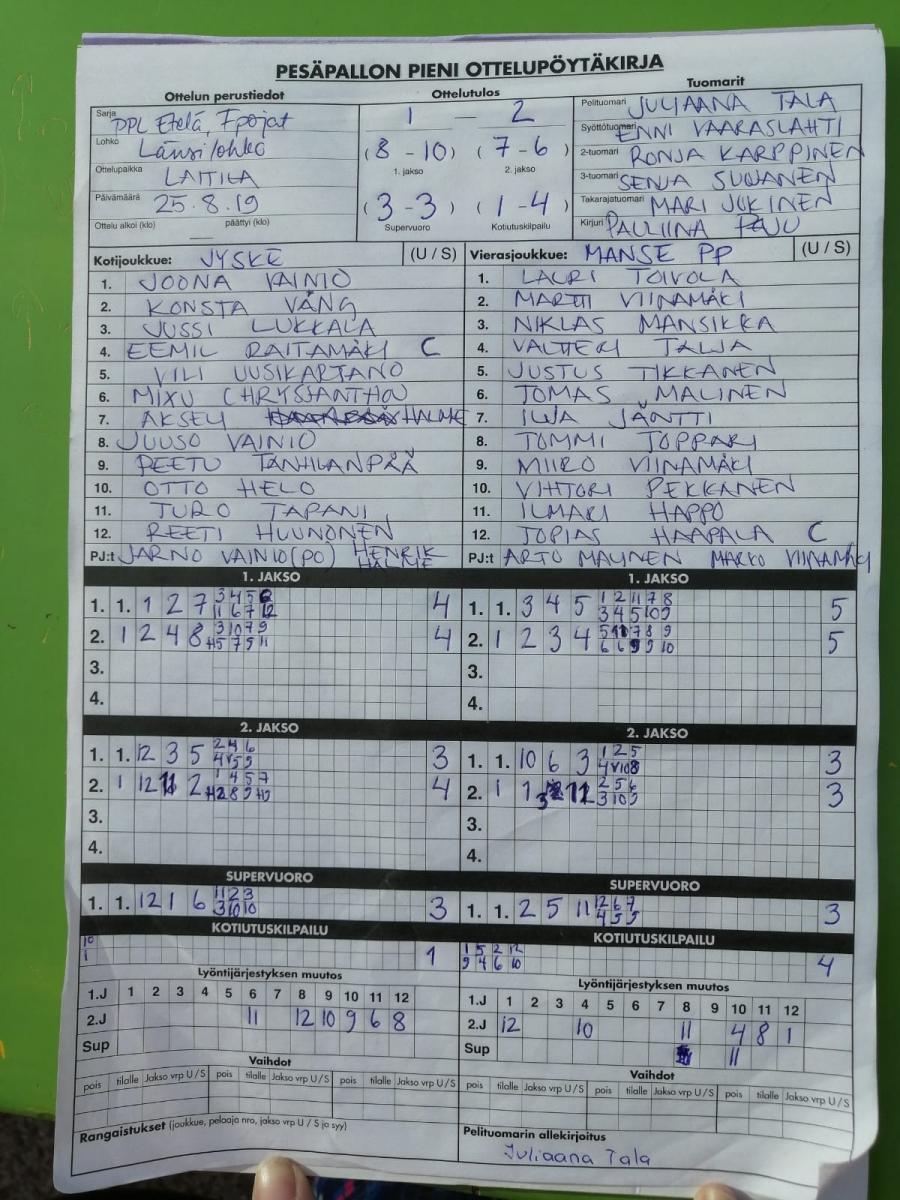 PESÄPALLON PIENI OTTELUPÖYTÄKIRJA
Ottelun perustiedot Ottelutulos Tuomarit
Sarja PPL Etelä, F pojat
Lohko Länsilohko
Ottelupaikka LAITILA
Päivämäärä 25.8.19
Ottelu alkoi (klo) — päättyi (klo)
1 — 2
(8 - 10) (7 - 6)
1. jakso 2. jakso
(3 - 3) (1 - 4)
Supervuoro Kotiutuskilpailu
Pelituomari JULIAANA TALA
Syöttötuomari ENNI VAARASLAHTI
2-tuomari RONJA KARPPINEN
3-tuomari SENJA SUVANEN
Takarajatuomari MARI JOKINEN
Kirjuri PAULIINA
Kotijoukkue: JYSKE (U / S)
1. JOONA VAINIO
2. KONSTA VÅNG
3. JUSSI LUKKALA
4. EEMIL RAITAMÄKI C
5. VILI UUSIKARTANO
6. MIXU CHRYSSANTHOU
7. AKSELI HALME
8. JUUSO VAINIO
9. PEETU TANHUANPÄÄ
10. OTTO HELO
11. TURO TAPANI
12. REETI HUUNONEN
PJ:t JARNO VAINIO (PO) HENRIK HALME
Vierasjoukkue: MANSE PP (U / S)
1. LAURI TOIVOLA
2. MARTTI VIINAMÄKI
3. NIKLAS MANSIKKA
4. VALTTERI TALJA
5. JUSTUS TIKKANEN
6. TOMAS MALINEN
7. ILJA JÄNTTI
8. TOMMI TOPPARI
9. MIIRO VIINAMÄKI
10. VIHTORI PEKKANEN
11. ILMARI HAPPO
12. TOPIAS HAAPALA C
PJ:t ARTO MALINEN MARKO VIINAMÄKI
1. JAKSO
1. 1. 1 2 7 4
2. 1 2 4 8 4
3.
4.
1. JAKSO
1. 1. 3 4 5 1 2 11 7 8 5
3 4 5 10 9
2. 1 2 3 4 5
3.
4.
2. JAKSO
1. 1. 12 3 5 3
2. 1 12 11 2 4
3.
4.
2. JAKSO
1. 1. 10 6 3 1 2 5 3
2. 1 1 3
3.
4.
SUPERVUORO
1. 1. 12 1 6 11 2 3 3
3 10 10
SUPERVUORO
1. 1. 2 5 11 12 6 7 3
4 5 9
KOTIUTUSKILPAILU
10
1 1
KOTIUTUSKILPAILU
1 5 2 12
9 4 6 10 4
Lyöntijärjestyksen muutos
1.J 1 2 3 4 5 6 7 8 9 10 11 12
2.J 11 12 10 9 6 8
Sup
Lyöntijärjestyksen muutos
1.J 1 2 3 4 5 6 7 8 9 10 11 12
2.J 12 10 11 4 8 1
Sup 11
Vaihdot
pois tilalle Jakso vrp U / S pois tilalle Jakso vrp U / S pois tilalle Jakso vrp U / S
Vaihdot
pois tilalle Jakso vrp U / S pois tilalle Jakso vrp U / S pois tilalle Jakso vrp U / S
Rangaistukset (joukkue, pelaaja nro, jakso vrp U / S ja syy)
Pelituomarin allekirjoitus
Juliaana Tala